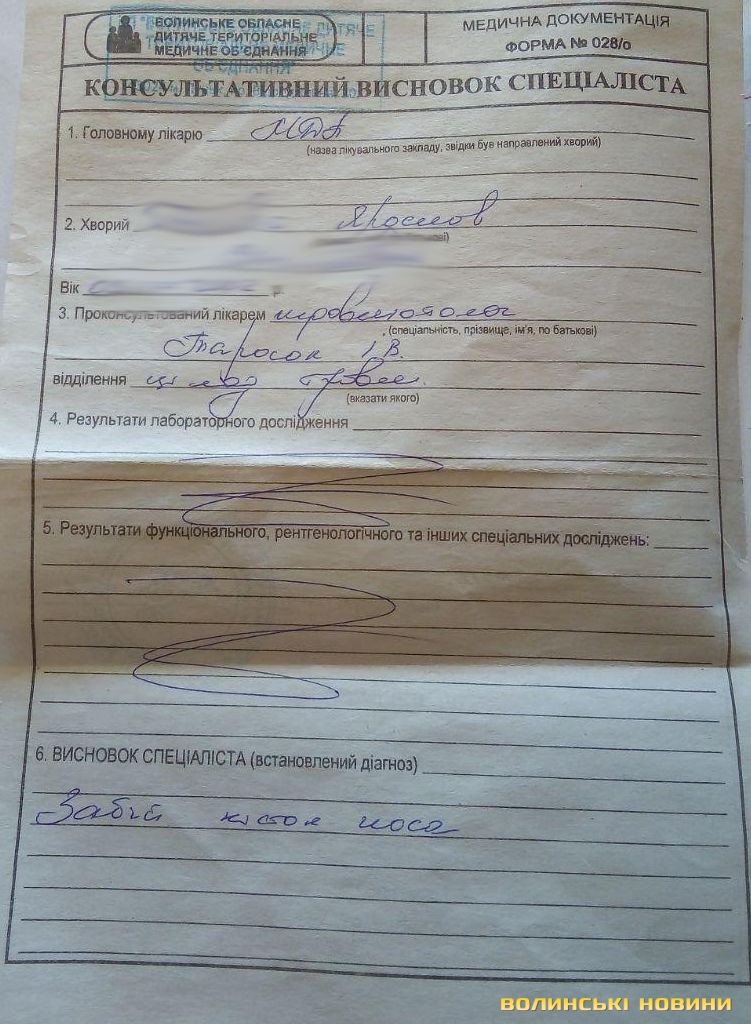 ВОЛИНСЬКЕ ОБЛАСНЕ
ДИТЯЧЕ ТЕРИТОРІАЛЬНЕ
МЕДИЧНЕ ОБ'ЄДНАННЯ
МЕДИЧНА ДОКУМЕНТАЦІЯ
ФОРМА № 028/о
КОНСУЛЬТАТИВНИЙ ВИСНОВОК СПЕЦІАЛІСТА
1. Головному лікарю
(назва лікувального закладу, звідки був направлений хворий)
2. Хворий Ярослав
Вік
3. Проконсультований лікарем травматолог
(спеціальність, прізвище, ім'я, по батькові)
І. В.
відділення
(вказати якого)
4. Результати лабораторного дослідження
5. Результати функціонального, рентгенологічного та інших спеціальних досліджень:
6. ВИСНОВОК СПЕЦІАЛІСТА (встановлений діагноз)
Забій кісток носа
ВОЛИНСЬКІ НОВИНИ